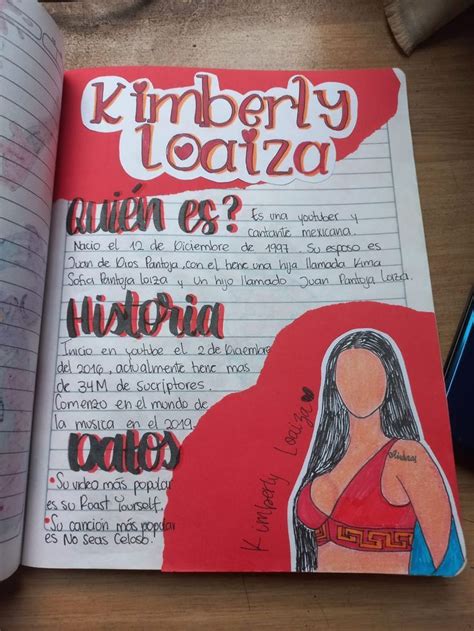 Kimberly
Loaiza
Quién es?
Es una youtuber y
cantante mexicana.
Nacio el 12 de Diciembre de 1997. Su esposo es
Juan de Dios Pantoja, con el tiene una hija llamada Kima
Sofia Pantoja loiza y un hijo llamado Juan Pantoja Loaiza.
Historia
Inicio en youtube el 2 de Diciembre
del 2016, actualmente tiene mas
de 34M de sucriptores.
Comenzo en el mundo de
la musica en el 2019.
Datos
•Su video más popular
es su Roast Yourself.
•Su cancion más popular
es No Seas Celoso.
Kimberly Loaiza